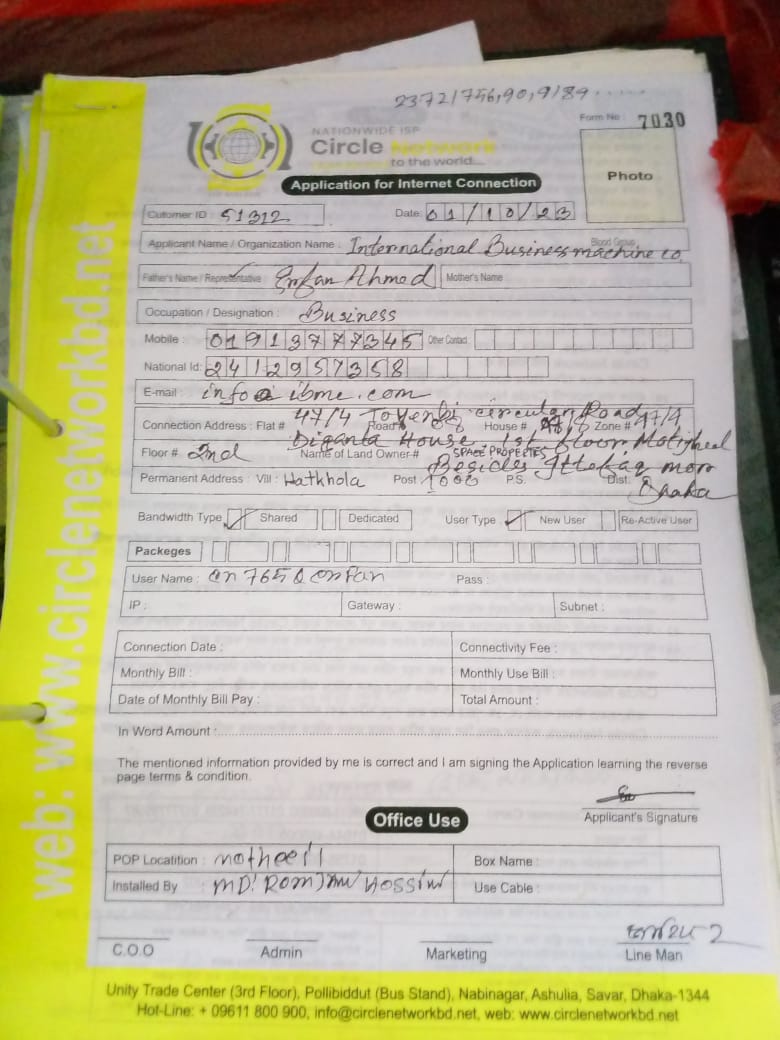 23721756,90,9/89.....
Form No : 7030
NATIONWIDE ISP
Circle Network
to the world...
Photo
Application for Internet Connection
Cutomer ID : 51312 Date : 01/10/23
Blood Group
Applicant Name / Organization Name : International Business machine co.
Father's Name / Representative Enfan Ahmed Mother's Name
Occupation / Designation : Business
Mobile : 01913777345 Other Contact :
National Id: 2412957358
E-mail : info@ibme.com
47/4 Toyenbi circular Road
Connection Address : Flat # Road# House # Zone # 47/4
Diganta House. 1st floor Motijheel
Floor # 2nd Name of Land Owner# SPACE PROPERTIES
Besides Ittefaq mor
Permanent Address : Vill : Hatkhola Post : 1000 P.S. Dist:
Dhaka
Bandwidth Type Shared Dedicated User Type : New User Re-Active User
Packeges
User Name : Pass :
IP : Gateway : Subnet :
Connection Date : Connectivity Fee :
Monthly Bill : Monthly Use Bill :
Date of Monthly Bill Pay : Total Amount :
In Word Amount :
The mentioned information provided by me is correct and I am signing the Application learning the reverse
page terms & condition.
Applicant's Signature
Office Use
POP Locatition : motheeil Box Name :
Installed By : MD: ROMJAN HOSSIN Use Cable :
C.O.O Admin Marketing Line Man
Unity Trade Center (3rd Floor), Pollibiddut (Bus Stand), Nabinagar, Ashulia, Savar, Dhaka-1344
Hot-Line: + 09611 800 900, info@circlenetworkbd.net, web: www.circlenetworkbd.net
web: www.circlenetworkbd.net